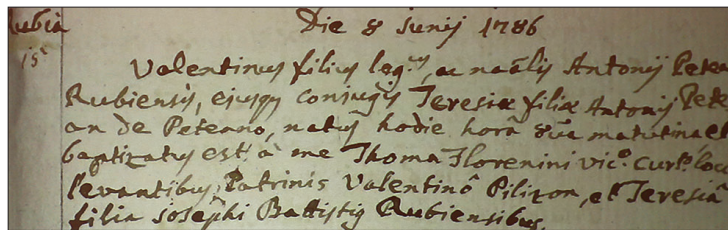 Rubia
Die 8 Junij 1786
15
Valentinus filius leg.us, ac naālis Antonij Petean
Rubiensis, ejusq conjugis Teresiæ filiæ Antonij Pete
an de Peteano, natus hodie horâ 8va matutina et
baptizatus est à me Thoma Florenini vic.o Cur.to loci
levantibus Patrinis Valentinô Pilizon, et Teresia
filia Josephi Battistig Rubiensibus.